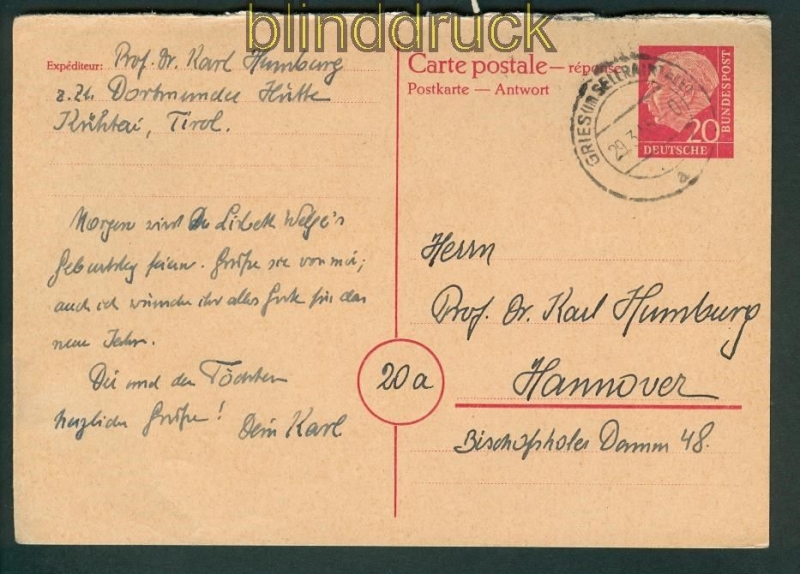 blinddruck
Expéditeur: Prof. Dr. Karl Humburg
z. Zt. Dortmunder Hütte
Kühtai, Tirol.
Morgen wirst Du Lisbeth Welge's
Geburtstag feiern. Grüße sie von mir;
auch ich wünsche ihr alles Gute für das
neue Jahr.
Dir und den Töchtern
herzliche Grüße!
Dein Karl
Carte postale — réponse
Postkarte — Antwort
GRIES (IM SELLRAIN)
29.3.
a
20
DEUTSCHE
BUNDESPOST
Herrn
Prof. Dr. Karl Humburg
20a
Hannover
Bischofsholer Damm 48.